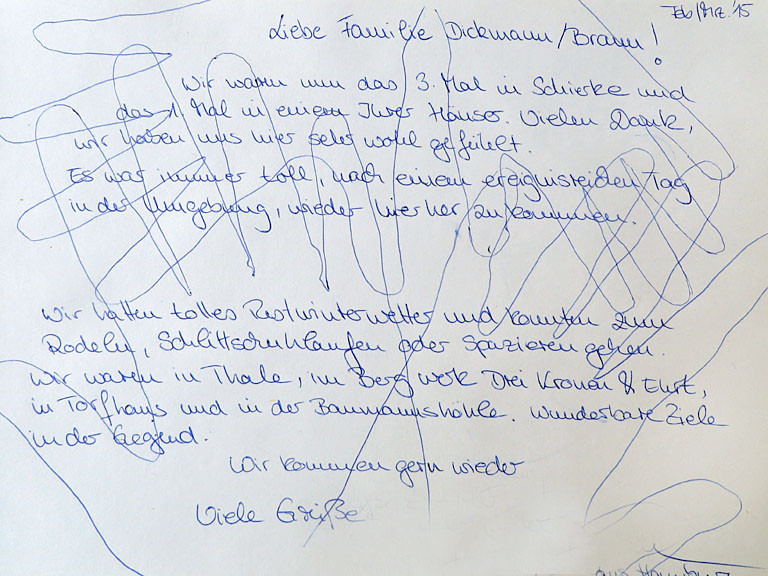 Feb/Mrz. 15
Liebe Familie Dickmann/Braun!
Wir waren nun das 3. Mal in Schierke und
das 1. Mal in einem Ihrer Häuser. Vielen Dank,
wir haben uns hier sehr wohl gefühlt.
Es war immer toll, nach einem ereignisreichen Tag
in der Umgebung, wieder hierher zu kommen.
Wir hatten tolles Restwinterwetter und konnten zum
Rodeln, Schlittschuhlaufen oder Spazieren gehen.
Wir waren in Thale, im Bergwerk Drei Kronen & Ehrt,
in Torfhaus und in der Baumannshöhle. Wunderbare Ziele
in der Gegend.
Wir kommen gern wieder
Viele Grüße
aus Hamburg